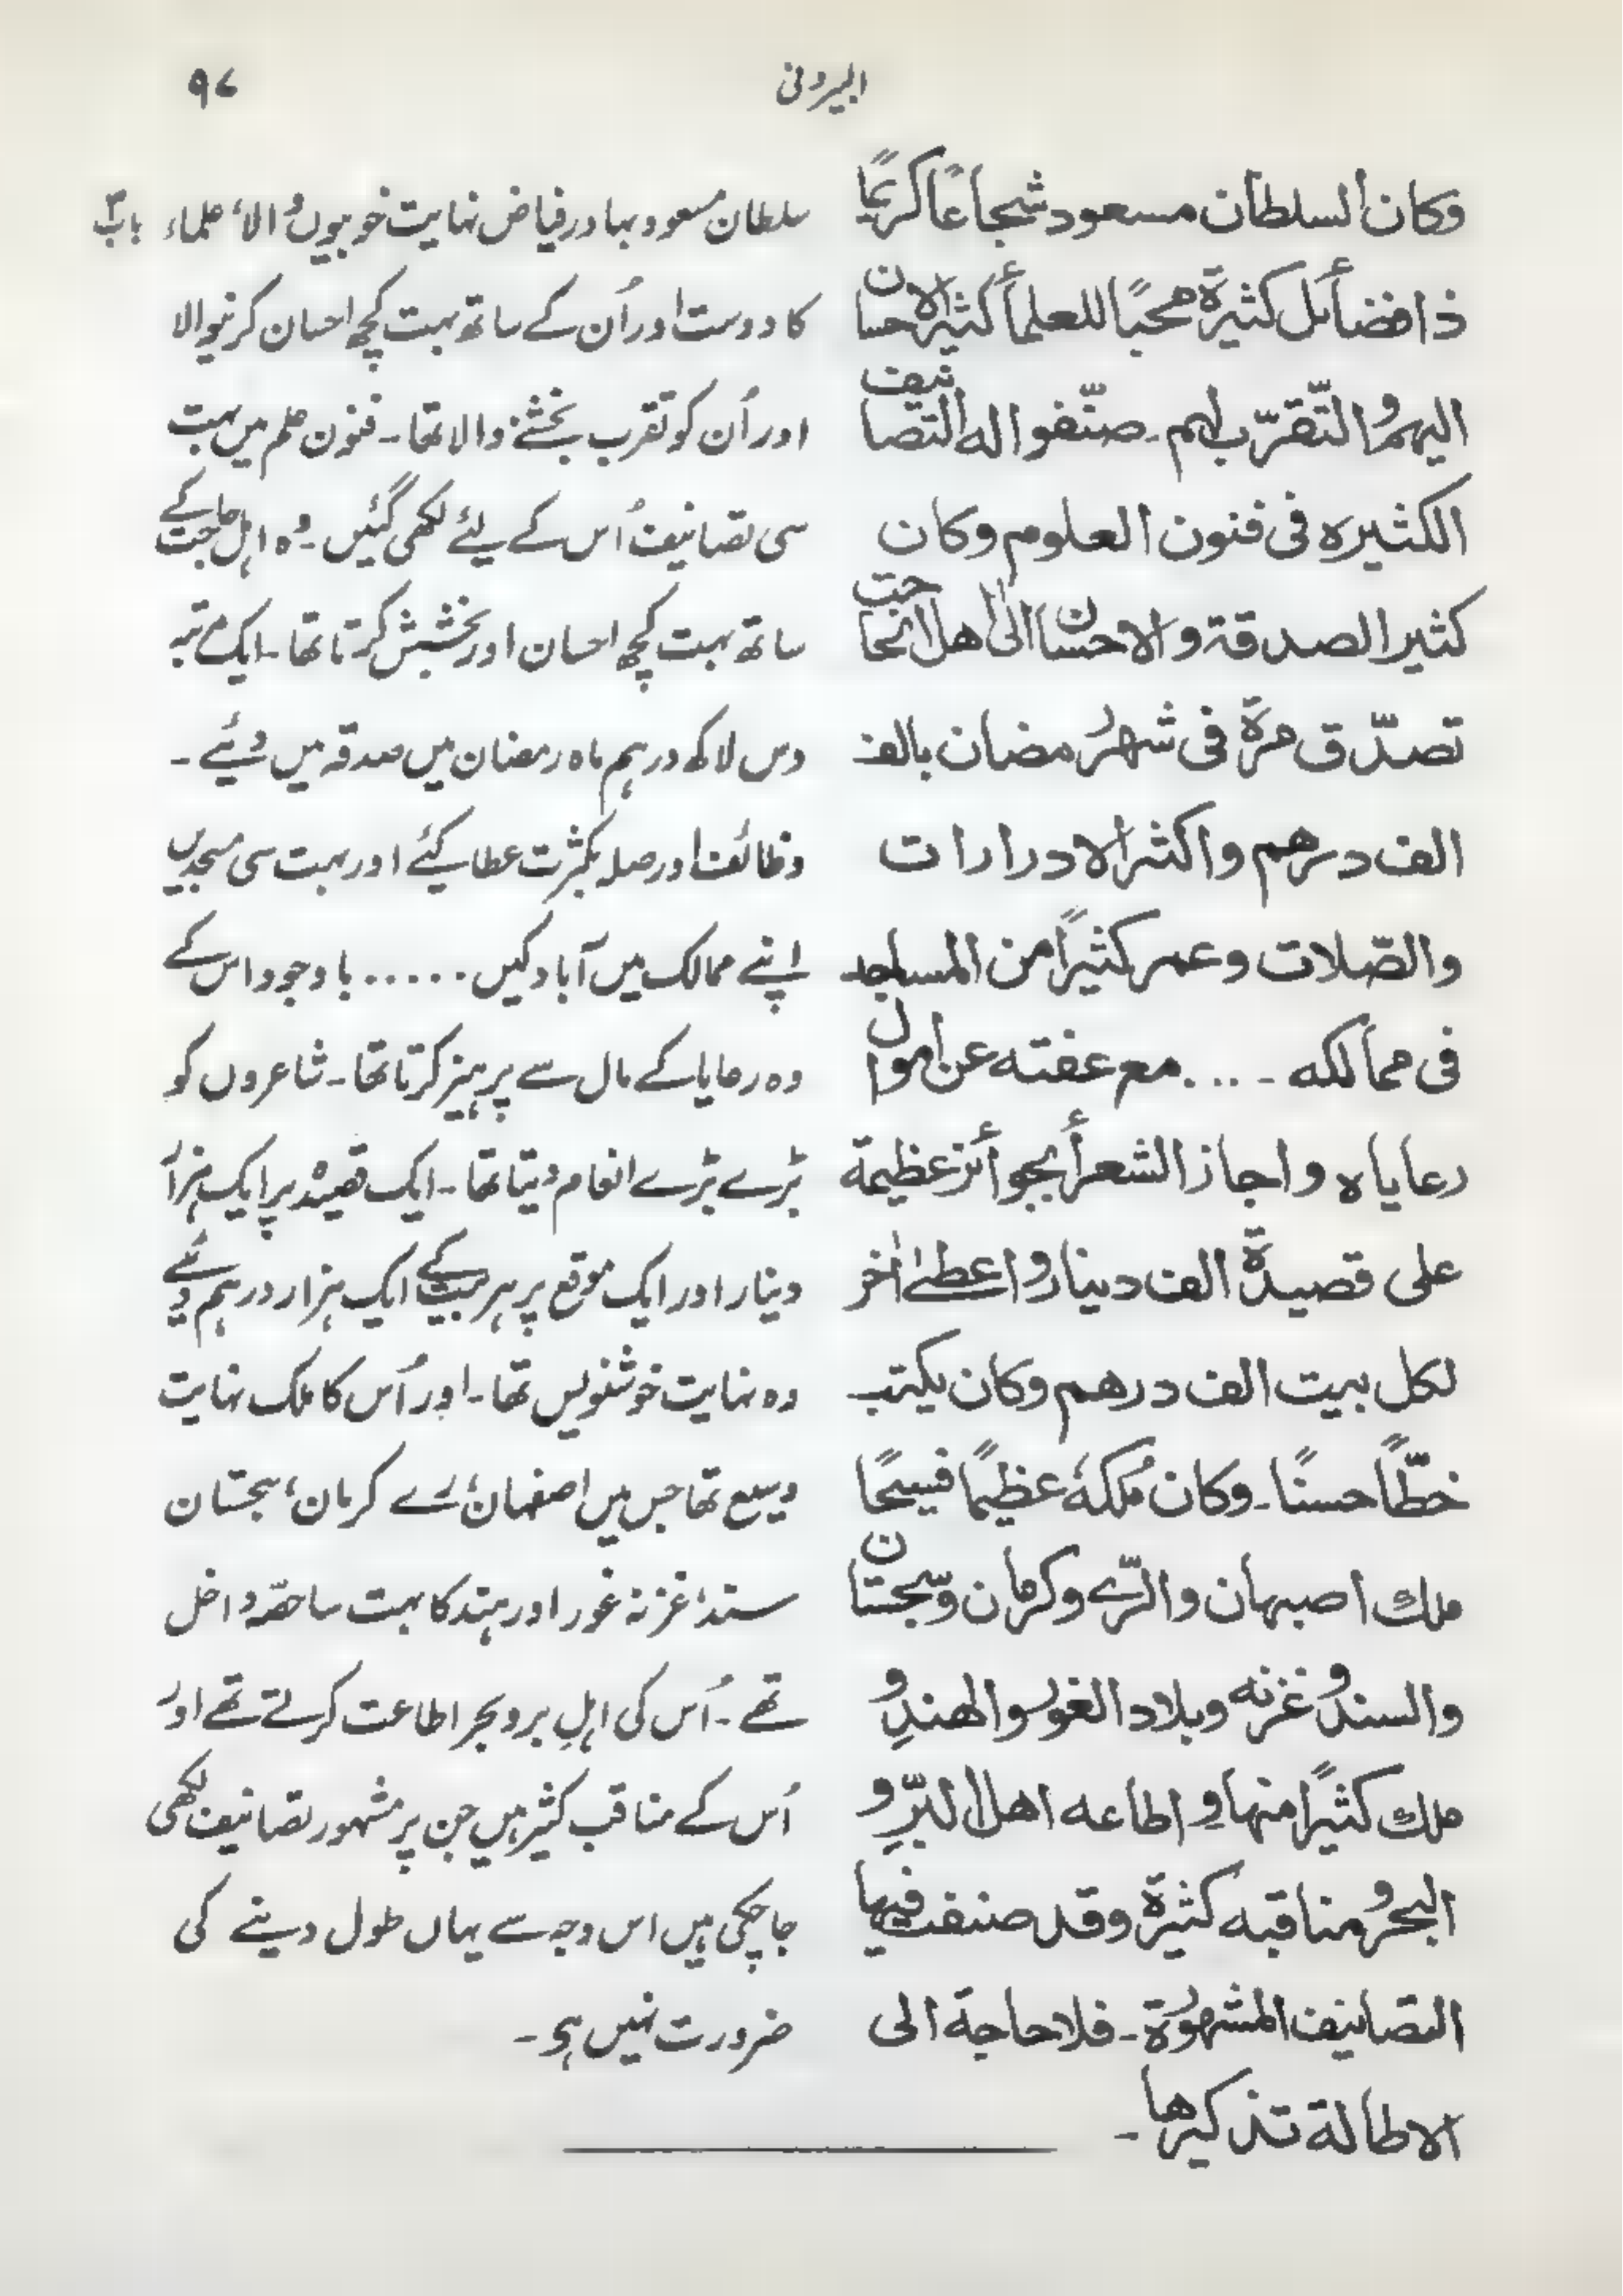 البیرونی
۹۷
وکان السلطان مسعود شجاعًا کریمًا
ذا فضائل کثیرۃ محبًا للعلمأ کثیر الاحسان
الیهم والتّقرّب لهم۔ صنّفوا له التصانیف
الکثیرہ فی فنون العلوم وکان
کثیر الصدقة والاحسان الیٰ اهل الحاجت
تصدّق مرّۃ فی شهر رمضان بالف
الف درهم واکثر الادرارات
والصّلات وعمر کثیرًا من المساجد
فی ممالکه ۔ ....مع عفته عن اموال
رعایاہ واجاز الشعرأ بجوائز عظیمة
علی قصیدۃ الف دینار واعطیٰ اٰخر
لکل بیت الف درهم وکان یکتب
خطّاً حسنًا۔ وکان مُلکهٗ عظیمًا فسیحًا
ملك اصبهان والرّے وکرمان وسجستان
والسند وغزنه وبلاد الغور والهندِ و
ملك کثیرًا منها و اطاعه اهل البرِّ و
البحر ومناقبه کثیرۃ وقد صنفت فیها
التصانیف المشهورۃ۔ فلا حاجة الی
الاطالة تذکیرها۔
باب
سلطان مسعود بہادر فیاض نہایت خوبیوں والا، علماء
کا دوست اور اُن کے ساتھ بہت کچھ احسان کرنیوالا
اور اُن کو تقرب بخشنے والا تھا۔ فنون علم میں بہت
سی تصانیف اُس کے لئے لکھی گئیں۔ وہ اہل حاجت کے
ساتھ بہت کچھ احسان اور بخشش کرتا تھا۔ ایک مرتبہ
دس لاکھ درہم ماہ رمضان میں صدقہ میں دیئے ۔
وظائف اور صلہ بکثرت عطا کیئے اور بہت سی مسجدیں
اپنے ممالک میں آباد کیں ..... باوجود اس کے
وہ رعایا کے مال سے پرہیز کرتا تھا۔ شاعروں کو
بڑے بڑے انعام دیتا تھا۔ ایک قصیدہ پر ایک ہزار
دینار اور ایک موقع پر ہر بیت کے ایک ہزار درہم دیئے
وہ نہایت خوشنویس تھا۔ اور اُس کا ملک نہایت
وسیع تھا جس میں اصفہان، رے کرمان، سجستان
سند، غزنہ غور اور ہند کا بہت سا حصّہ داخل
تھے۔ اُس کی اہلِ بر و بحر اطاعت کرتے تھے اور
اُس کے مناقب کثیر ہیں جن پر مشہور تصانیف لکھی
جا چکی ہیں اس وجہ سے یہاں طول دینے کی
ضرورت نہیں ہی۔